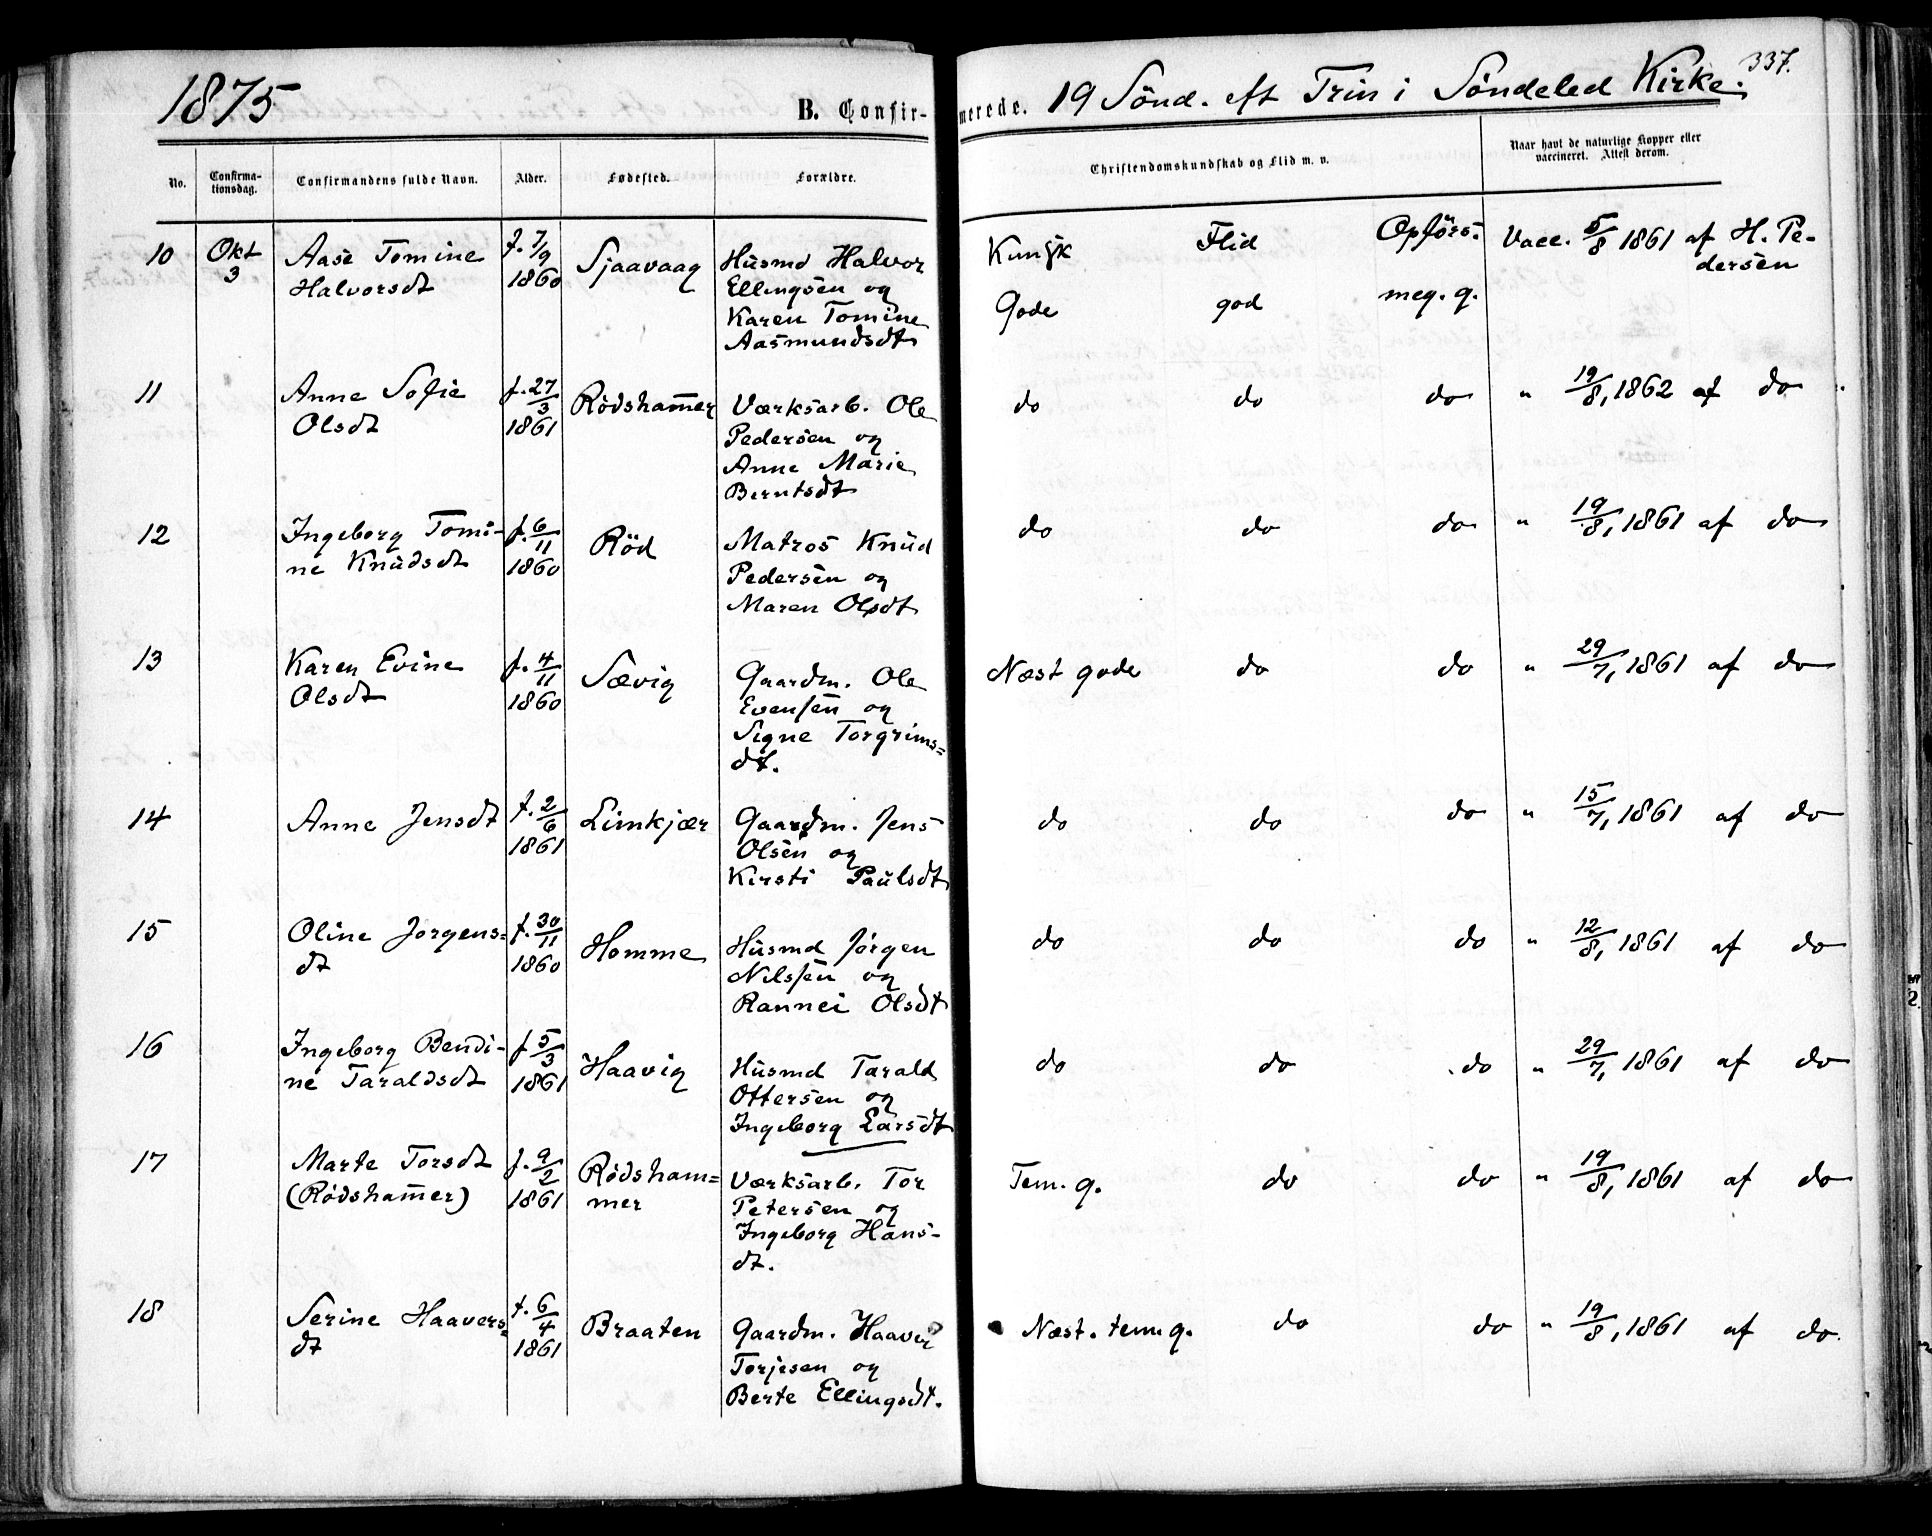 1875 B. Confir-
merede. 19 Sönd. eft Trin i Söndeled Kirke. 337.
No. Confirma-tionsdag. Confirmandens fulde Navn. Alder. Fødested. Forældre.
Christendomskundskab og Flid m. v. Naar havt de naturlige Kopper eller
vaccineret. Attest derom.
10 Okt Aase Tomine f. 7/9 Sjaavaag Husmd Halvor Kunsk Flid Opförs. Vacc. 5/8 1861 af H. Pe-
3 Halvorsdt 1860 Ellingsen og dersen
Karen Tomine Gode god meg. g.
Aasmundsdt
11 Anne Sofie f. 27/3 Rödshamer Værksarb. Ole do do do " 19/8, 1862 af do
Olsdt 1861 Pedersen og
Anne Marie
Berntsdt
12 Ingeborg Tomi- f. 6/11 Röd Matros Knud do do do " 19/8, 1861 af do
ne Knudsdt 1860 Pedersen og
Maren Olsdt
13 Karen Evine f. 4/11 Sævig Gaardm. Ole Næst gode do do " 29/7, 1861 af do
Olsdt 1860 Evensen og
Signe Torgrims=
dt.
14 Anne Jensdt f. 2/6 Limkjær Gaardm. Jens do do do " 15/7, 1861 af do
1861 Olsen og
Kirsti Paulsdt
15 Oline Jørgens= f. 30/11 Homme Husmd Jörgen do do do " 12/8, 1861 af do
dt 1860 Nilssen og
Rannei Olsdt
16 Ingeborg Bendi- f 5/3 Haavig Husmd Tarald do do do " 29/7, 1861 af do
ne Taraldsdt 1861 Ottersen og
Ingeborg Larsdt
17 Marte Torsdt f. 9/2 Rödsham= Værksarb. Tor Tem. g. do do " 19/8, 1861 af do
(Rödshamer) 1861 mer Petersen og
Ingeborg Hans-
dt.
18 Serine Haavers= f. 6/4 Braaten Gaardm. Haaver Næst. tem g. do do " 19/8, 1861 af do.
dt 1861 Torjesen og
Berte Ellingsdt.